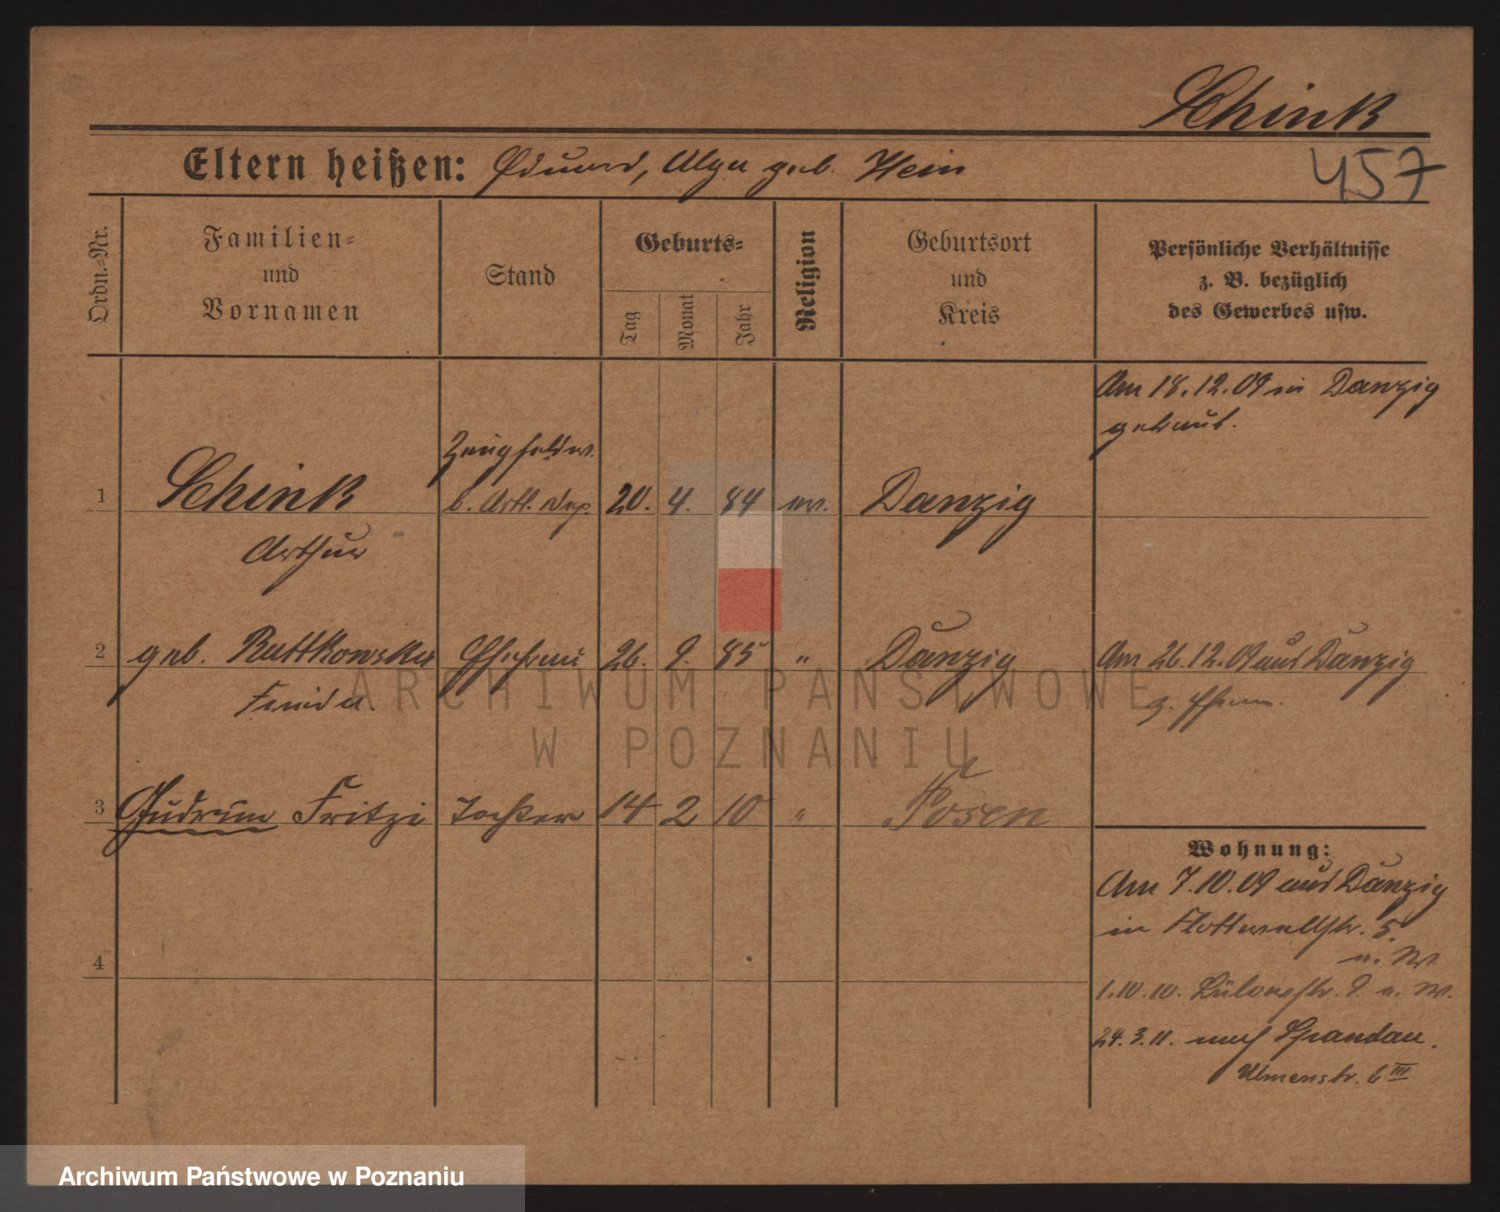 Schink
457
Eltern heißen: Eduard, Olga geb. Hein
Ordn.-Nr.
Familien-
und
Vornamen
Stand
Geburts-
Tag
Monat
Jahr
Religion
Geburtsort
und
Kreis
Persönliche Verhältnisse
z. B. bezüglich
des Gewerbes usw.
Am 18.12.09 in Danzig
getraut.
Zeugfeldw.
1 Schink b. Artl. Dep. 20. 4. 84 ev. Danzig
Arthur
2 geb. Ruttkowska Ehefrau 26. 9. 85 " Danzig Am 26.12.09 aus Danzig
Frieda. z. Ehem.
3 Gudrun Fritzi Tochter 14 2 10 " Posen
Wohnung:
Am 7.10.09 aus Danzig
in Flottwellstr. 5.
n. W.
4
1.10.10. Bülowstr. 9 n. W.
24.3.11. nach Spandau.
Ulmenstr. 6 III
ARCHIWUM PAŃSTWOWE
W POZNANIU
Archiwum Państwowe w Poznaniu